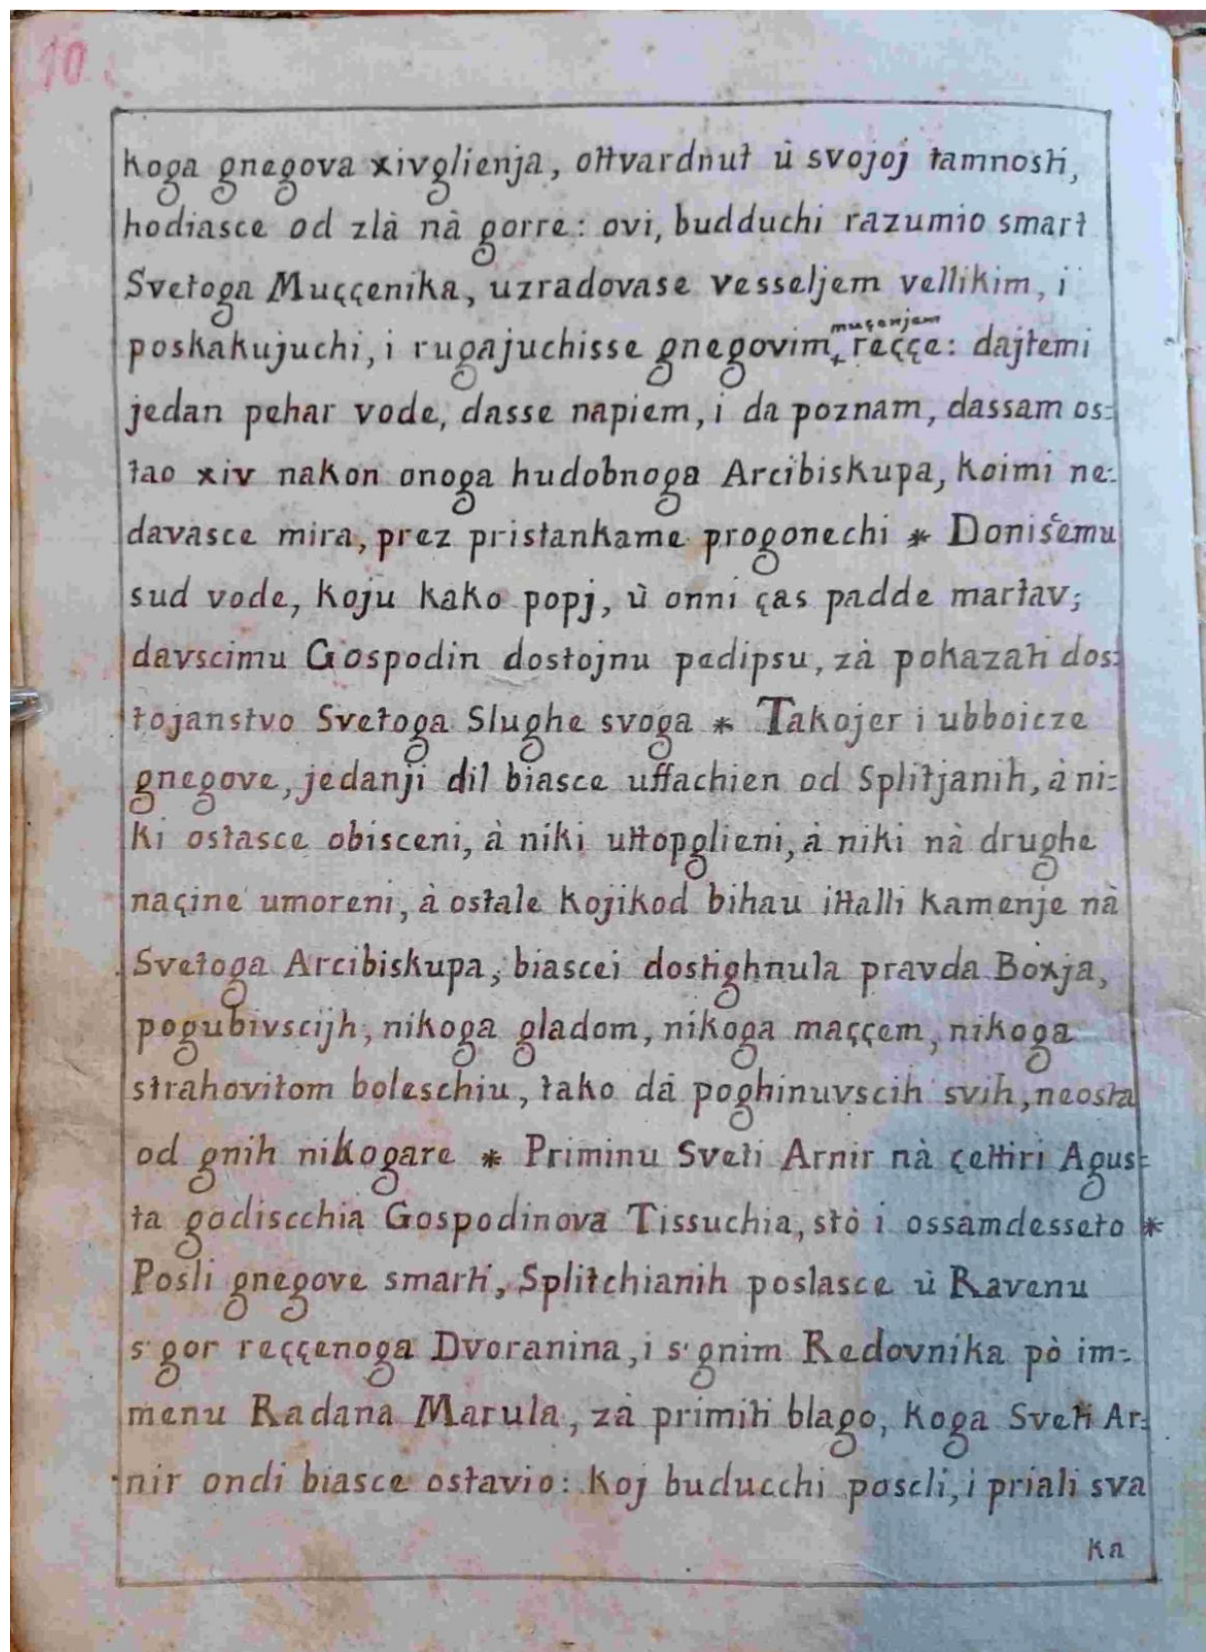 10
koga gnegova xivglienja, ottvardnut ù svojoj tamnosti,
hodiasce od zlà nà gorre: ovi, budduchi razumio smart
Svetoga Muççenika, uzradovase vesseljem vellikim, i
muçenjem
poskakujuchi, i rugajuchisse gnegovim + reççe: dajtemi
jedan pehar vode, dasse napiem, i da poznam, dassam os=
tao xiv nakon onoga hudobnoga Arcibiskupa, koimi ne=
davasce mira, prez pristankame progonechi * Donisčemu
sud vode, koju kako popj, ù onni ças padde martav;
davscimu Gospodin dostojnu pedipsu, zà pokazati dos=
tojanstvo Svetoga Slughe svoga * Takojer i ubboicze
gnegove, jedanji dil biasce uffachien od Splitjanih, à ni=
ki ostasce obisceni, à niki uttopglieni, à niki nà drughe
naçine umoreni, à ostale kojikod bihau ittalli kamenje nà
Svetoga Arcibiskupa, biascei dostighnula pravda Boxja,
pogubivscijh, nikoga gladom, nikoga maççem, nikoga
strahovitom boleschiu, tako dà poghinuvscih svih, neosta
od gnih nikogare * Priminu Sveti Arnir nà çettiri Agus=
ta godiscchia Gospodinova Tissuchia, stò i ossamdesseto *
Posli gnegove smarti, Splitchianih poslasce ù Ravenu
s' gor reççenoga Dvoranina, i s' gnim Redovnika pò im=
menu Radana Marula, zà primiti blago, koga Sveti Ar=
nir ondi biasce ostavio: koj buducchi poscli, i priali sva
ka